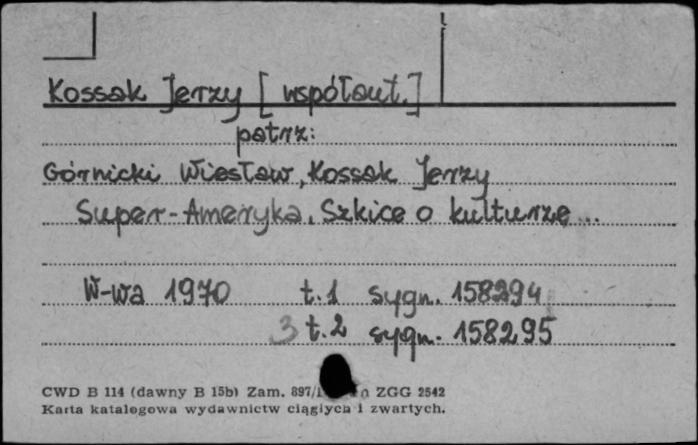 Kossak Jerzy [współaut.]
patrz:
Górnicki Wiesław, Kossak Jerzy
Super-Ameryka. Szkice o kulturze...
W-wa 1970 t.1 sygn. 158294
3 t.2 sygn. 158295
CWD B 114 (dawny B 15b) Zam. ZGG 2542
Karta katalogowa wydawnictw ciągłych i zwartych.